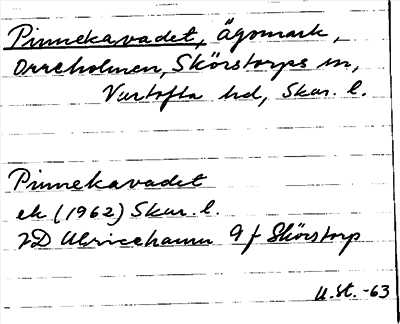 Pinnekavadet, ägomark,
Orreholmen, Skörstorps sn,
Vartofta hd, Skar. l.
Pinnekavadet
ek (1962) Skar. l.
7D Ulricehamn 9 f Skörstorp
U.St. -63